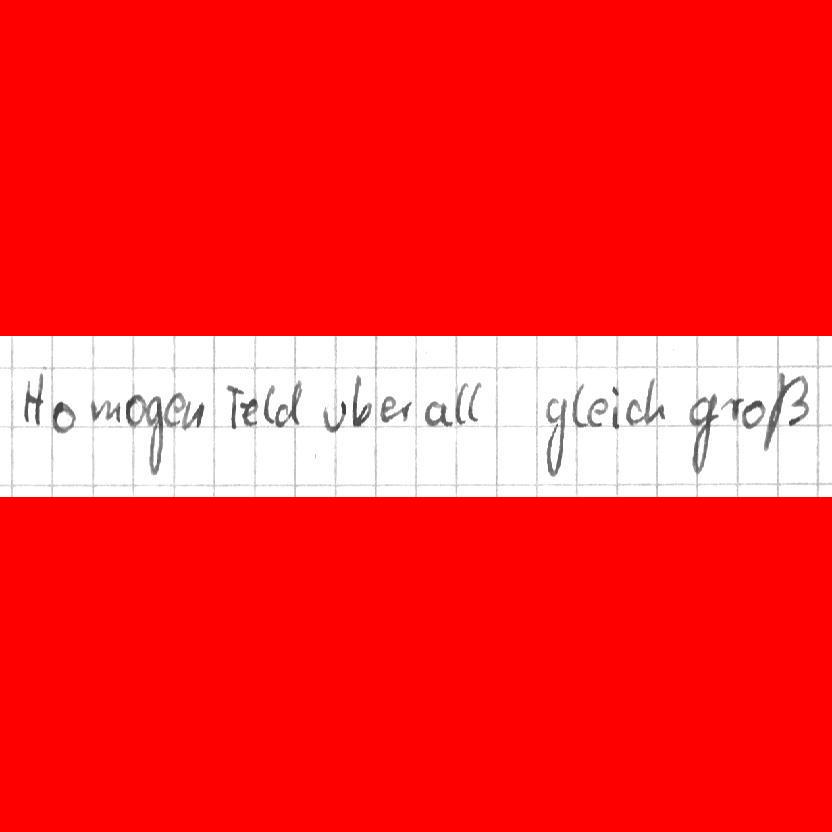 Homogen Feld uberall gleich groß